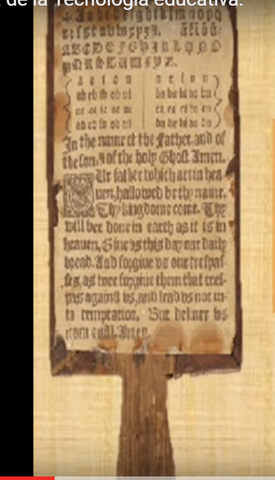 de la Tecnología educativa.
a e i o u a e i o u
ab eb ib ob ub ba be bi bo bu
ac ec ic oc uc ca ce ci co cu
ad ed id od ud da de di do du
In the name of the Father, and of
the Son, & of the holy Ghost. Amen.
Ur father which art in hea
uen, hallowed be thy name.
Thy kingdome come. Thy
will bee done in earth as it is in
heauen. Giue vs this day our daily
bread. And forgiue vs our trespas-
ses, as wee forgiue them that tres-
pas against vs, and lead vs not in-
to temptation, But deliuer vs
from euill. Amen.